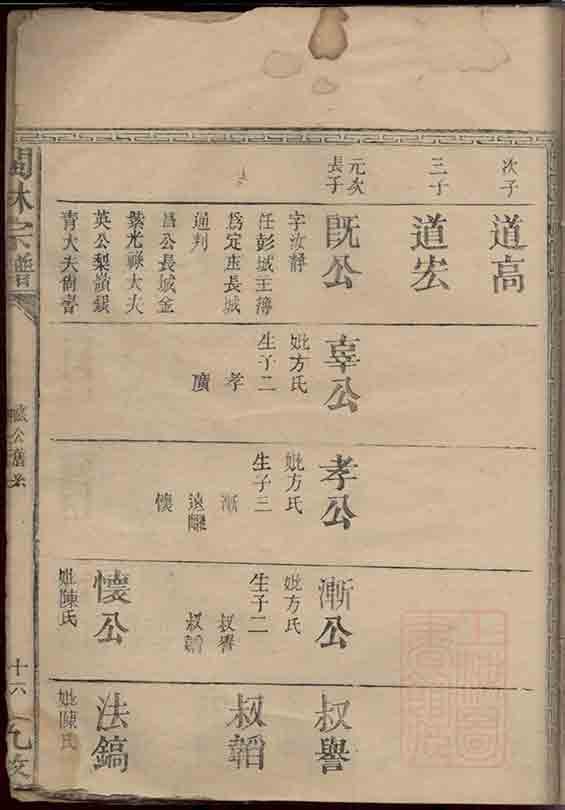 次子
道高
三子
道宏
元次
長子
既公
字汝靜
任彭城主簿
為定
長城
通判
昌公長城金
紫光祿大夫
英公梨嶺銀
青大夫
辜公
妣方氏
生子二
孝
廣
孝公
妣方氏
生子三
漸
遠
懷
漸公
妣方氏
生子二
叔譽
叔韜
懷公
妣陳氏
叔譽
叔韜
法鎬
妣陳氏
林宗譜
公舊
十六